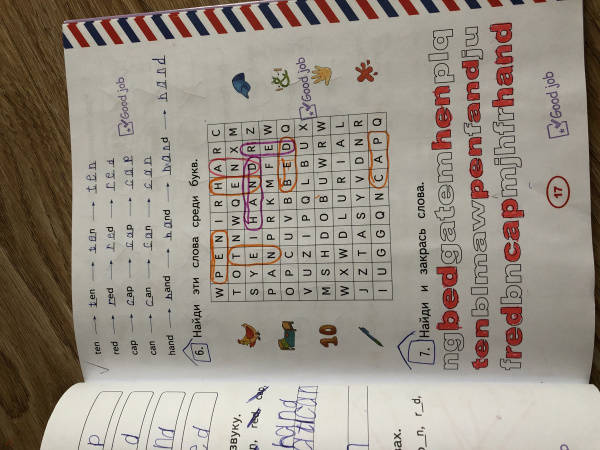 ten → ten → ten
red → red → red
cap → cap → cap
can → can → can
hand → hand → hand
Good job
6. Найди эти слова среди букв.
W P E N I R H A R C
T O T N W Q E N X M
S Y E I H A N D R Z
P A N P R K M F E W
O P C U V B B E D O
V U Z I P Q L B U X
M S H D O B U W R W
W X W D L U R I A L
J Z T A S Y V D N R
I U G G Q N C A P Q
10
Good job
7. Найди и закрась слова.
ngbedgatemhenplq
tenblmawpenfandju
fredbncapmjhfrhand
Good job
17
звуку.
red, cap,
hand
_n, r_d,